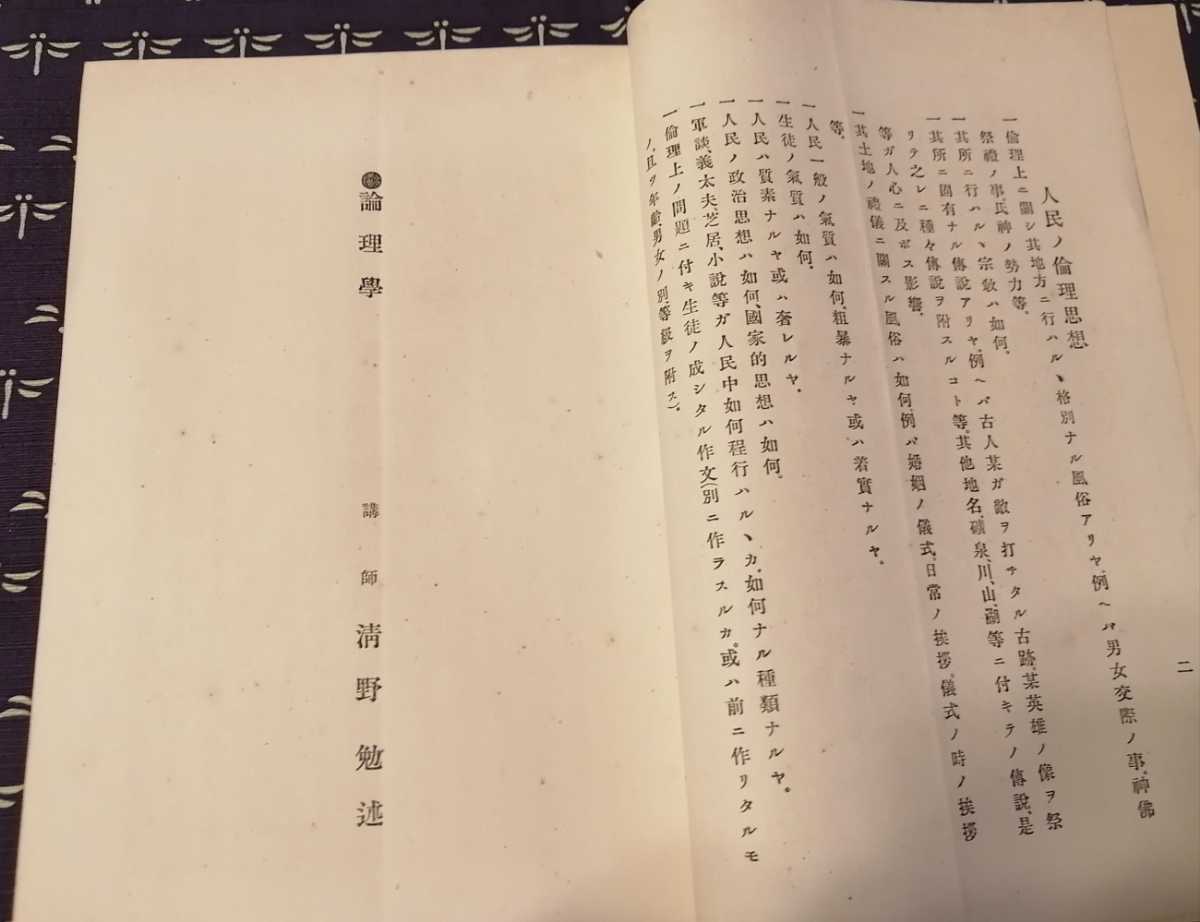 二
人民ノ倫理思想
一倫理上ニ關シ其地方ニ行ハルヽ格別ナル風俗アリヤ、例ヘバ男女交際ノ事、神佛
祭禮ノ事、氏神ノ勢力等。
一其所ニ行ハルヽ宗敎ハ如何。
一其所ニ固有ナル傳說アリヤ、例ヘバ古人某ガ敵ヲ打チタル古跡、某英雄ノ像ヲ祭
リテ之レニ種々傳說ヲ附スルコト等。其他地名、礦泉、川、山、瀧等ニ付キテノ傳說、是
等ガ人心ニ及ボス影響。
一其土地ノ禮儀ニ關スル風俗ハ如何、例バ婚姻ノ儀式、日常ノ挨拶、儀式ノ時ノ挨拶
等。
一人民一般ノ氣質ハ如何、粗暴ナルヤ或ハ着實ナルヤ。
一生徒ノ氣質ハ如何。
一人民ハ質素ナルヤ或ハ奢レルヤ。
一人民ノ政治思想ハ如何、國家的思想ハ如何。
一軍談、義太夫、芝居、小說等ガ人民中如何程行ハルヽカ、如何ナル種類ナルヤ。
一倫理上ノ問題ニ付キ生徒ノ成シタル作文(別ニ作ラスルカ、或ハ前ニ作リタルモ
ノ、且ツ年齡、男女ノ別、等級ヲ附ス)。
論理學
講師 淸野勉述